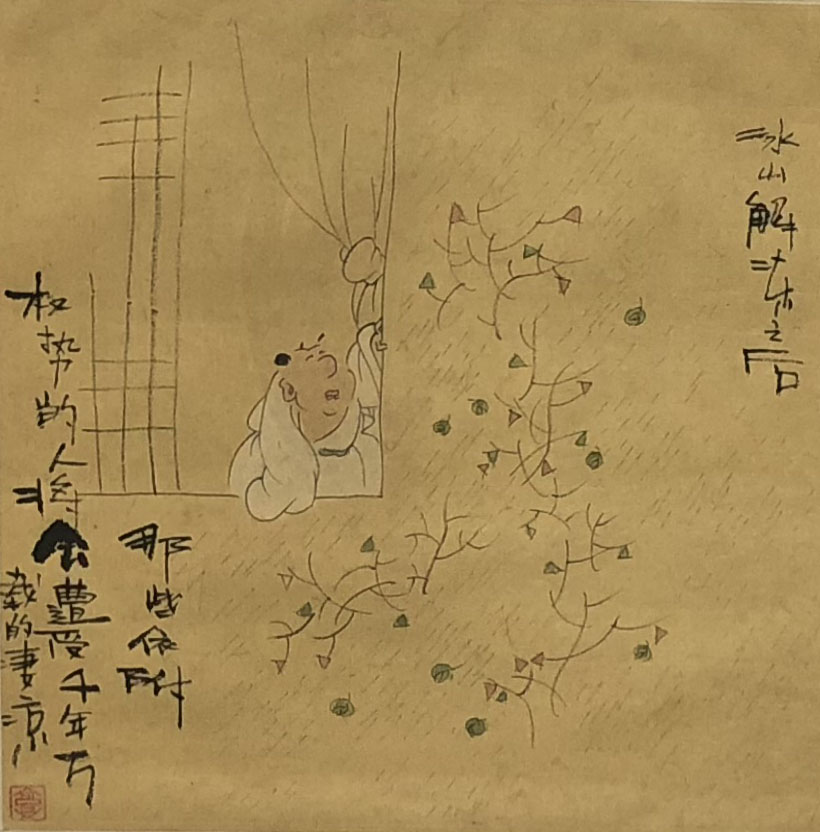 冰山解冻之后
那些依附
权势的人将
会遭受千年万
载的凄凉